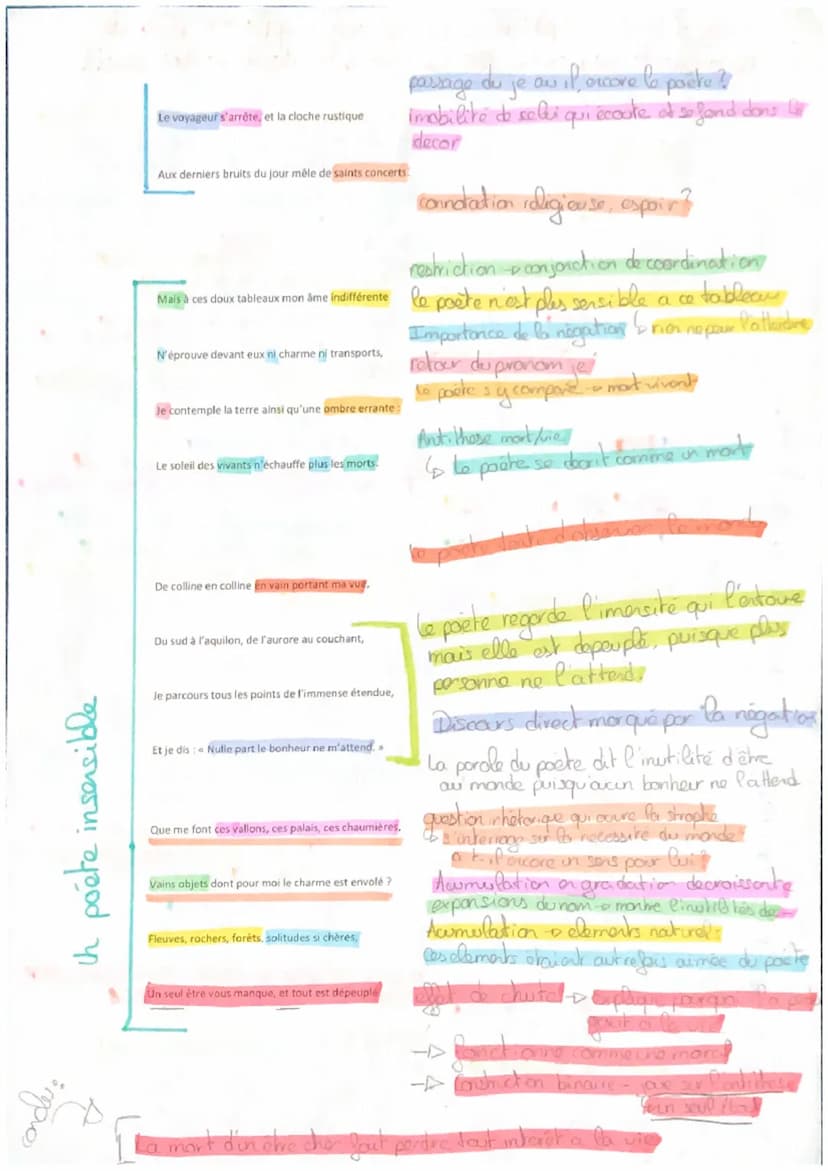 passage du je au il, encore le poète ?
Le voyageur s'arrête, et la cloche rustique
imobilité de celui qui écoute et se fond dans le
decor
Aux derniers bruits du jour mêle de saints concerts.
connotation religieuse, espoir ?
restriction → conjonction de coordination
Mais à ces doux tableaux mon âme indifférente
le poète n'est plus sensible a ce tableau
Importance de la négation ↳ rien ne peur l'atteindre
N'éprouve devant eux ni charme ni transports,
retour du pronom "je"
le poète s'y compare → mort vivant
Je contemple la terre ainsi qu'une ombre errante :
Antithèse mort/vie
Le soleil des vivants n'échauffe plus les morts.
↳ Le poète se décrit comme un mort
Le poète tente d'observer le monde
De colline en colline en vain portant ma vue,
Le poète regarde l'imensité qui l'entoure
Du sud à l'aquilon, de l'aurore au couchant,
mais elle est depeuplé, puisque plus
personne ne l'attend.
Je parcours tous les points de l'immense étendue,
Discours direct marqué par la négation
Et je dis : « Nulle part le bonheur ne m'attend. »
La parole du poète dit l'inutilité d'être
au monde puisqu'aucun bonheur ne l'attend
question rhétorique qui ouvre la strophe
Que me font ces vallons, ces palais, ces chaumières,
↳ s'interroge sur la nécessité du monde
a t-il encore un sens pour lui ?
Vains objets dont pour moi le charme est envolé ?
Acumulation en gradation decroissante
expansions du nom → montre l'inutilités de
Fleuves, rochers, forêts, solitudes si chères,
Acumulation → elements naturels
Ces elements étaient autrefois aimée du poète
Un seul être vous manque, et tout est dépeuplé
effet de chute → explique pourquoi le
→ fonctionne comme une
→ Construction binaire - axé sur l'antithèse
"un seul /tout"
un poète insensible
conclu :
La mort d'un être cher fait perdre tout intérêt a la vie